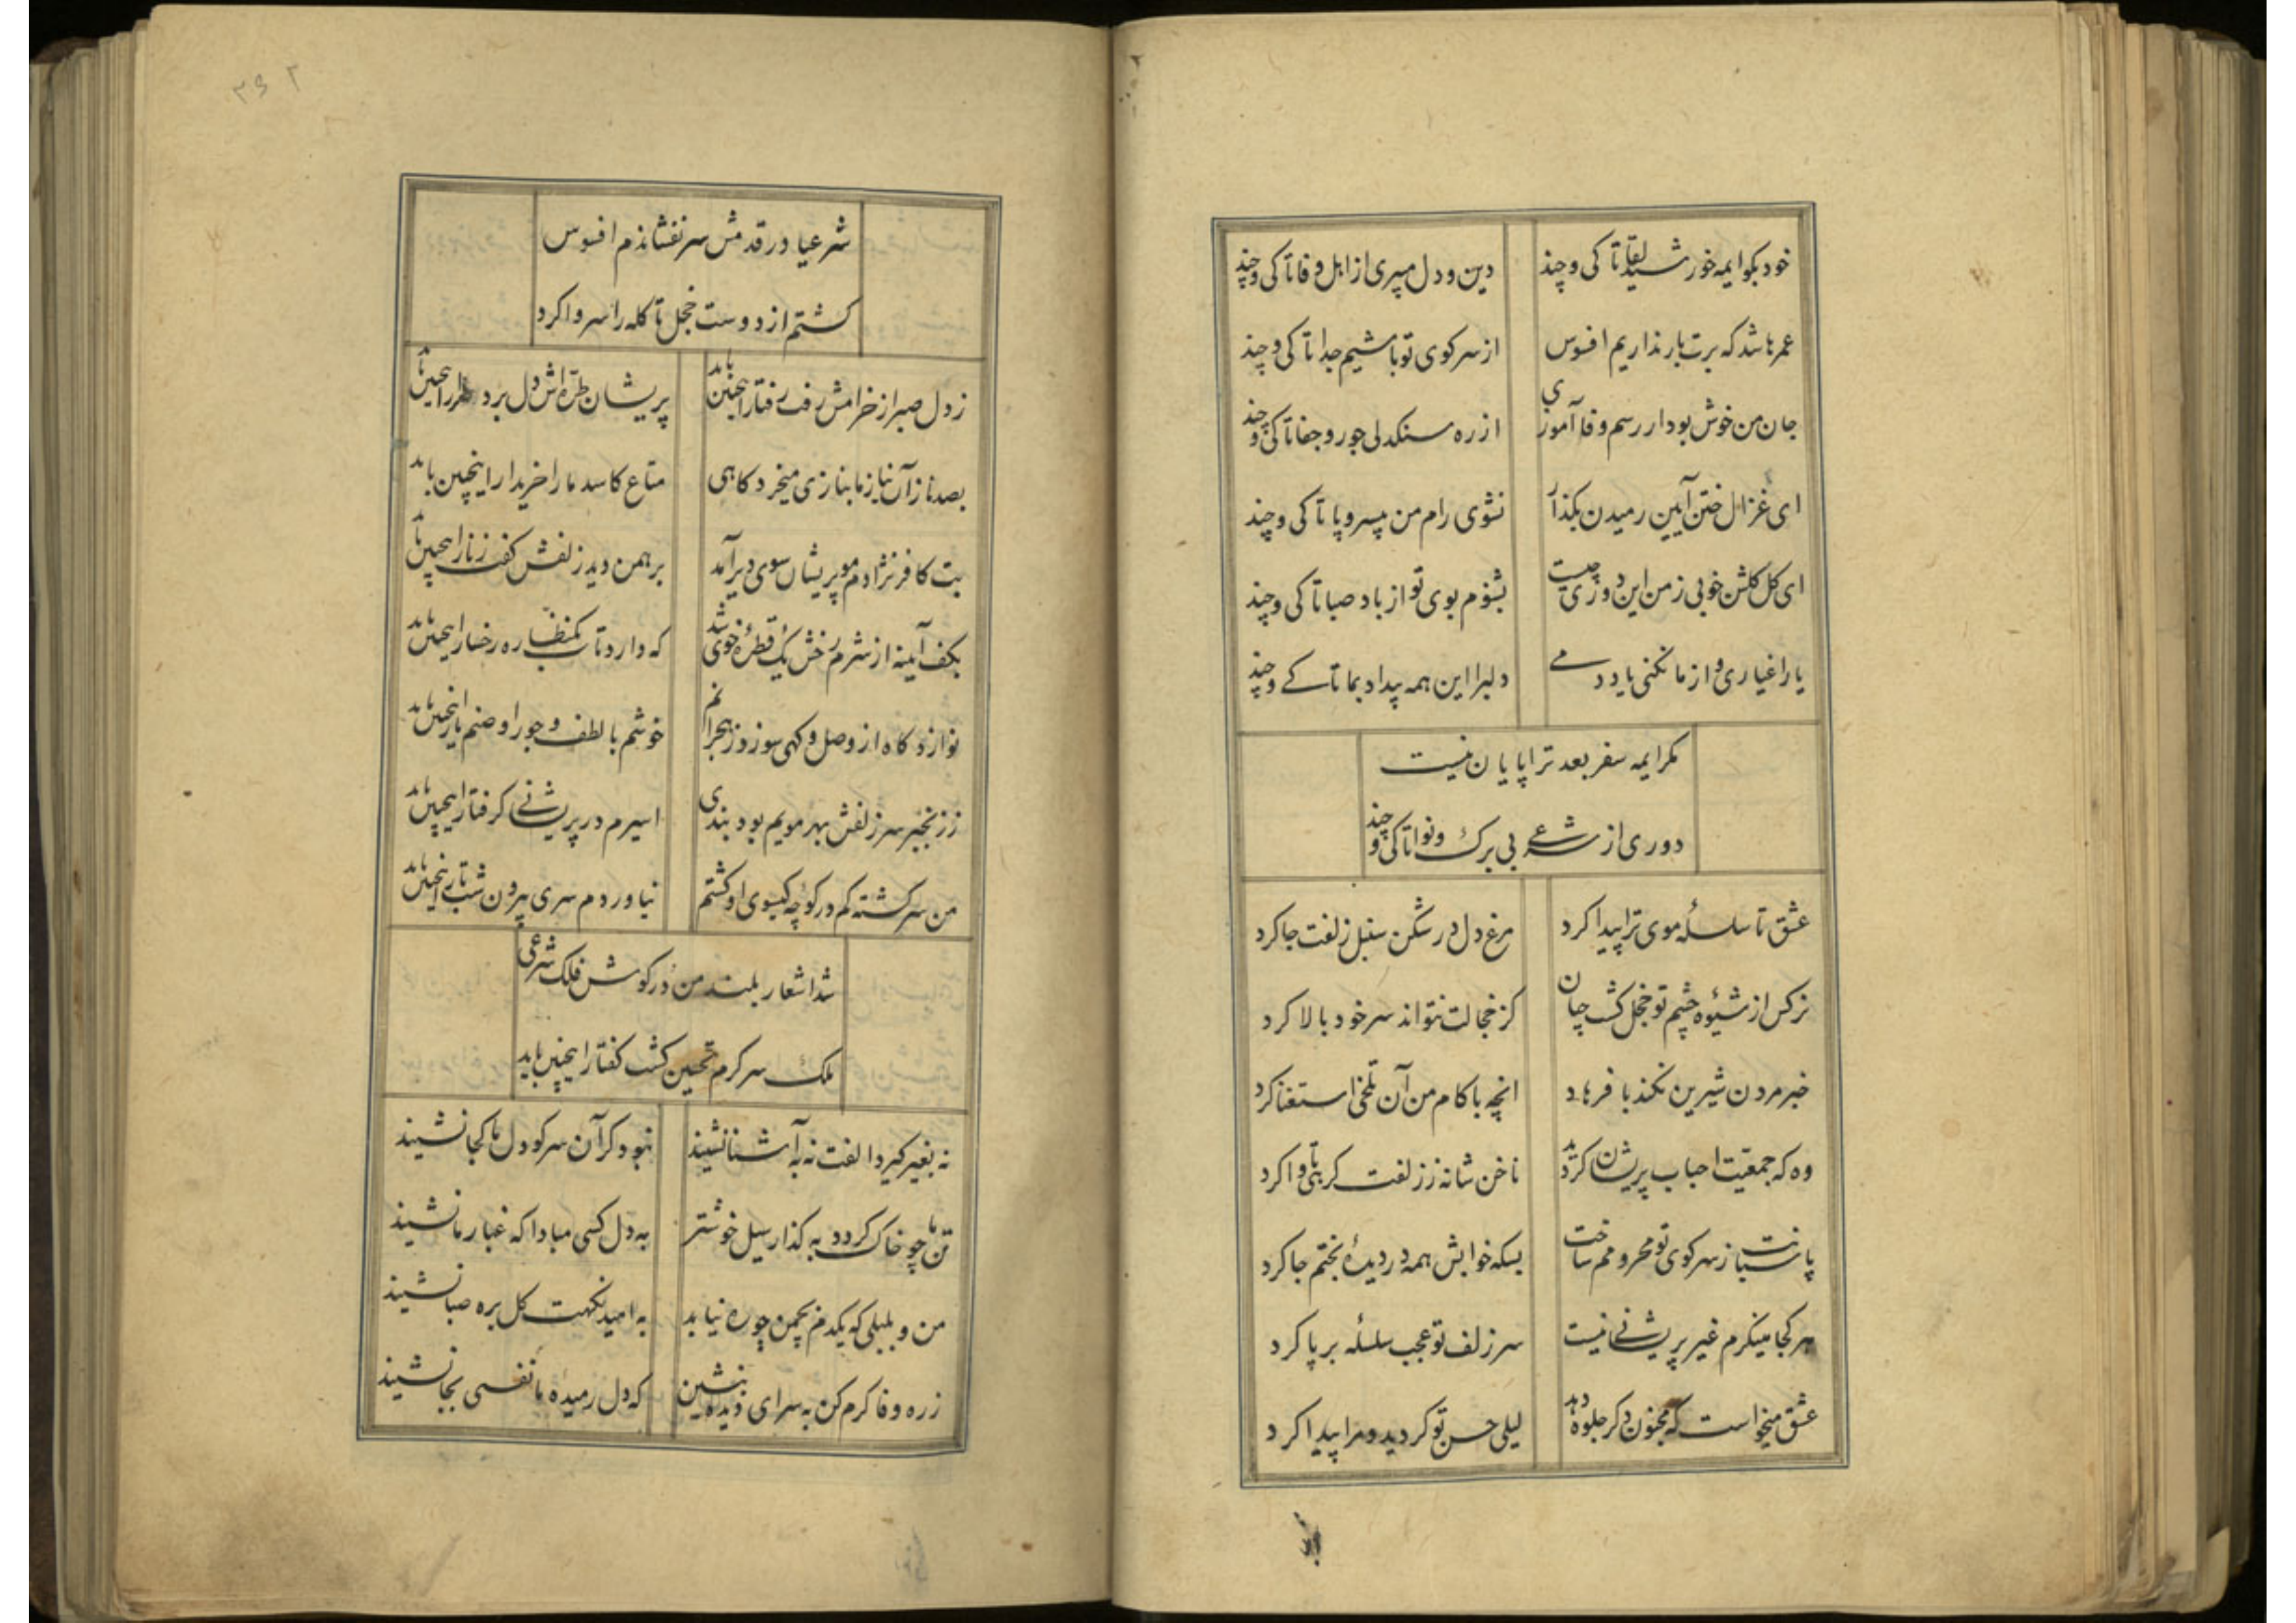 خود بکو ایمه خورشید لقا تا کی و چند
دین و دل میبری از اهل وفا تا کی و چند
عمرها شد که برت بار نداریم افسوس
از سر کوی تو باشیم جدا تا کی و چند
جان من خوش بود ار رسم وفا آموزی
از ره سنکدلی جور و جفا تا کی و چند
ای غزال ختن آیین رمیدن بکذار
نشوی رام من بیسروپا تا کی و چند
ای کل کلشن خوبی ز من این دوری چیست
بشنوم بوی تو از باد صبا تا کی و چند
یار اغیاری و از ما نکنی یاد دمی
دلبرا این همه بیداد بما تا کے و چند
مکر ایمه سفر بعد ترا پایان نیست
دوری از شرعے بی برک و نوا تا کی و چند
عشق تا سلسلهٔ موی ترا پیدا کرد
مرغ دل در شکن سنبل زلفت جا کرد
نرکس از شیوهٔ چشم تو خجل کشت چنان
کز خجالت نتواند سر خود بالا کرد
خبر مردن شیرین نکند با فرهاد
انچه با کام من آن تلخی استغنا کرد
وه که جمعیت احباب پریشان کردید
ناخن شانه ز زلفت کره تا وا کرد
پاسبانت ز سر کوی تو محرومم ساخت
بسکه خوابش همه در دیدهٔ بختم جا کرد
هر کجا مینکرم غیر پریشانے نیست
سر زلف تو عجب سلسله برپا کرد
عشق میخواست که مجنون دکر جلوه دهد
لیلی حسن تو کردید و مرا پیدا کرد
۳۶۲
شرعیا در قدمش سر نفشاندم افسوس
کشتم از دوست خجل تا کله را سر وا کرد
ز دل صبر از خرامش رفت رفتار اینچنین باید
پریشان طره‌اش دل برد طرار اینچنین باید
بصد ناز آن نیاز ما بنازی میخرد کاهی
متاع کاسد ما را خریدار اینچنین باید
بت کافر نژادم مو پریشان سوی دیر آمد
برهمن دید زلفش کفت زنار اینچنین باید
بکف آیینه از شرم رخش یک قطرهٔ خوی شد
که دارد تاب یکنظاره رخسار اینچنین باید
نوازد کاه از وصل و کهی سوزد ز هجرانم
خوشم با لطف و جور او صنم یار اینچنین باید
ز زنجیر سر زلفش بهر مویم بود بندی
اسیرم در پریشانے کرفتار اینچنین باید
من سرکشته کم در کوچهٔ کیسوی او کشتم
نیاوردم سری بیرون شب تار اینچنین باید
شد اشعار بلند من در کوش فلک شرعی
ملک سرکرم تحسین کشت کفتار اینچنین باید
نه بغیر کیرد الفت نه به آشنا نشیند
نبود کر آن سر کو دل ما کجا نشیند
تن ما چو خاک کردد به کذار سیل خوشتر
به دل کسی مبادا که غبار ما نشیند
من و بلبلی که یکدم بچمن چو ره نیابد
به امید نکهت کل بره صبا نشیند
ز ره وفا کرم کن به سرای دیده بنشین
که دل رمیده ما نفسی بجا نشیند